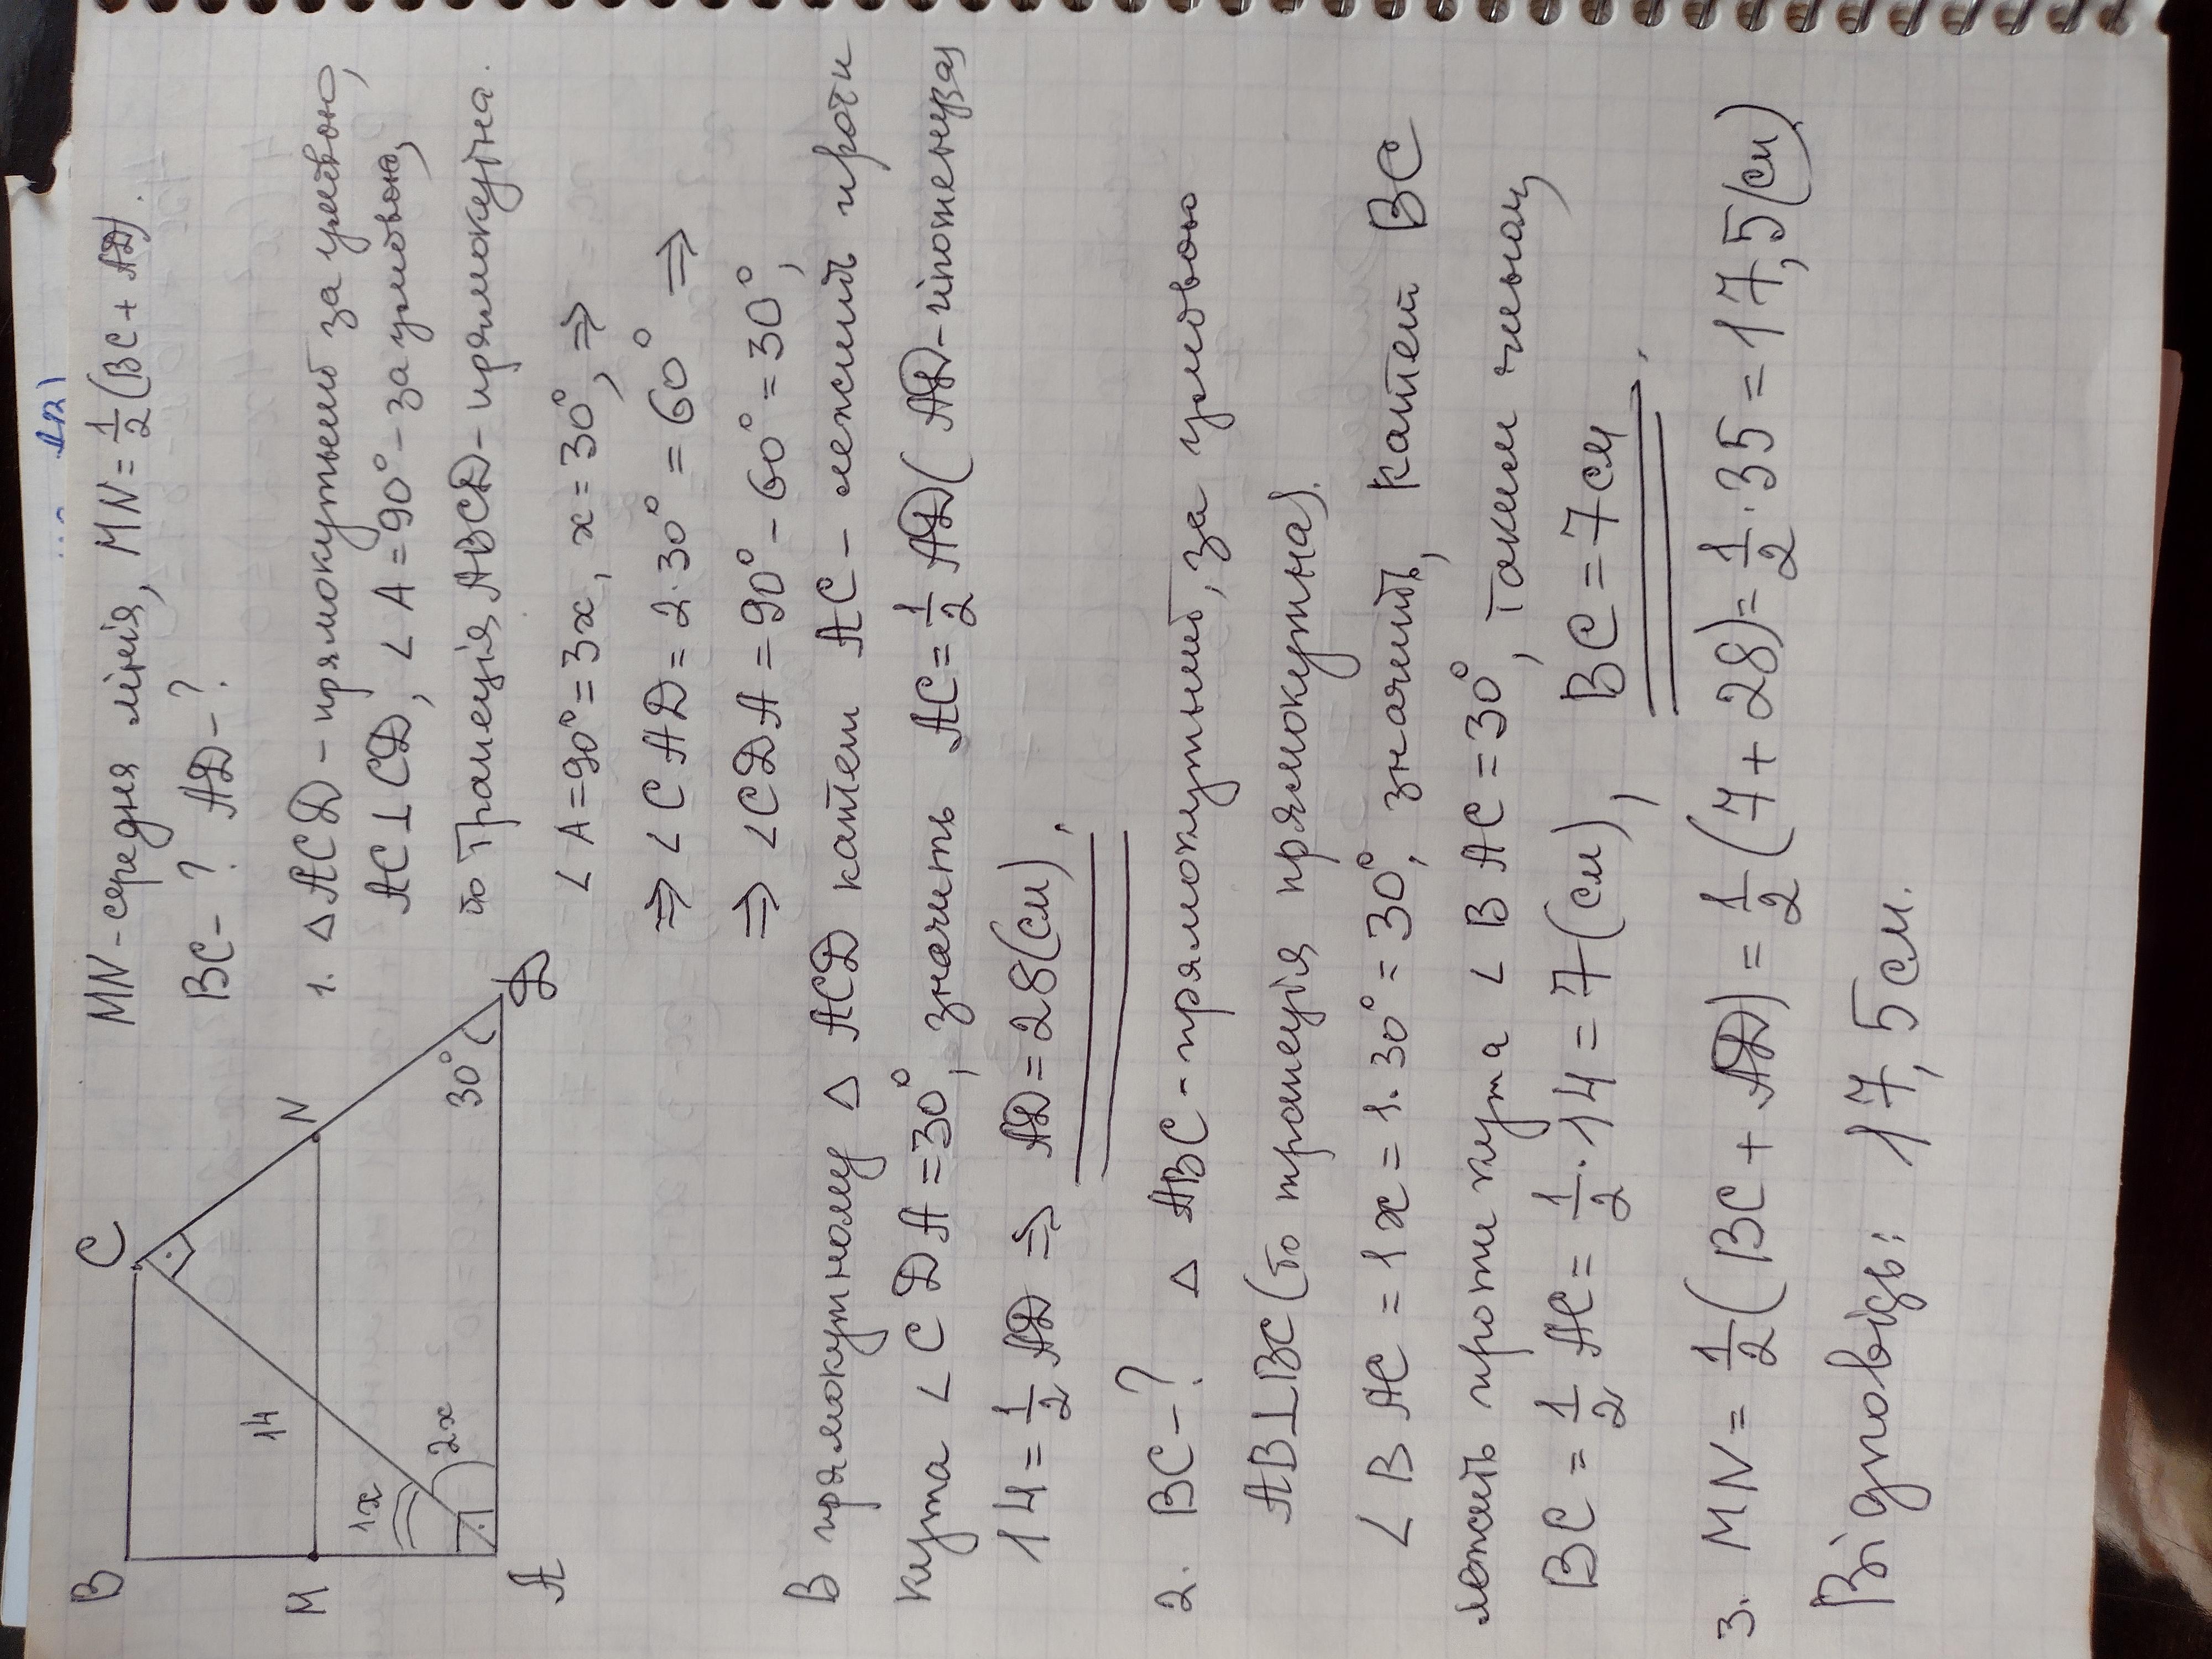 MN - середня лінія, MN = 1/2 (BC + AD).
BC - ? AD - ?
1. △ ACD - прямокутний за умовою,
AC ⊥ CD, ∠ A = 90° - за умовою,
бо трапеція ABCD - прямокутна.
∠ A = 90° = 3x, x = 30°, ⇒
⇒ ∠ CAD = 2·30° = 60° ⇒
⇒ ∠ CDA = 90° - 60° = 30°,
B
C
14
M
N
1x
2x
30°
A
D
В прямокутному △ ACD катет AC - лежить проти
кута ∠ CDA = 30°, значить AC = 1/2 AD (AD - гіпотенуза)
14 = 1/2 AD ⇒ AD = 28 (см).
2. BC - ? △ ABC - прямокутний, за умовою
AB ⊥ BC (бо трапеція прямокутна).
∠ BAC = 1x = 1·30° = 30°, значить, катет BC
лежить проти кута ∠ BAC = 30°, таким чином,
BC = 1/2 AC = 1/2 · 14 = 7 (см), BC = 7 см.
3. MN = 1/2 (BC + AD) = 1/2 (7 + 28) = 1/2 · 35 = 17,5 (см)
Відповідь: 17,5 см.